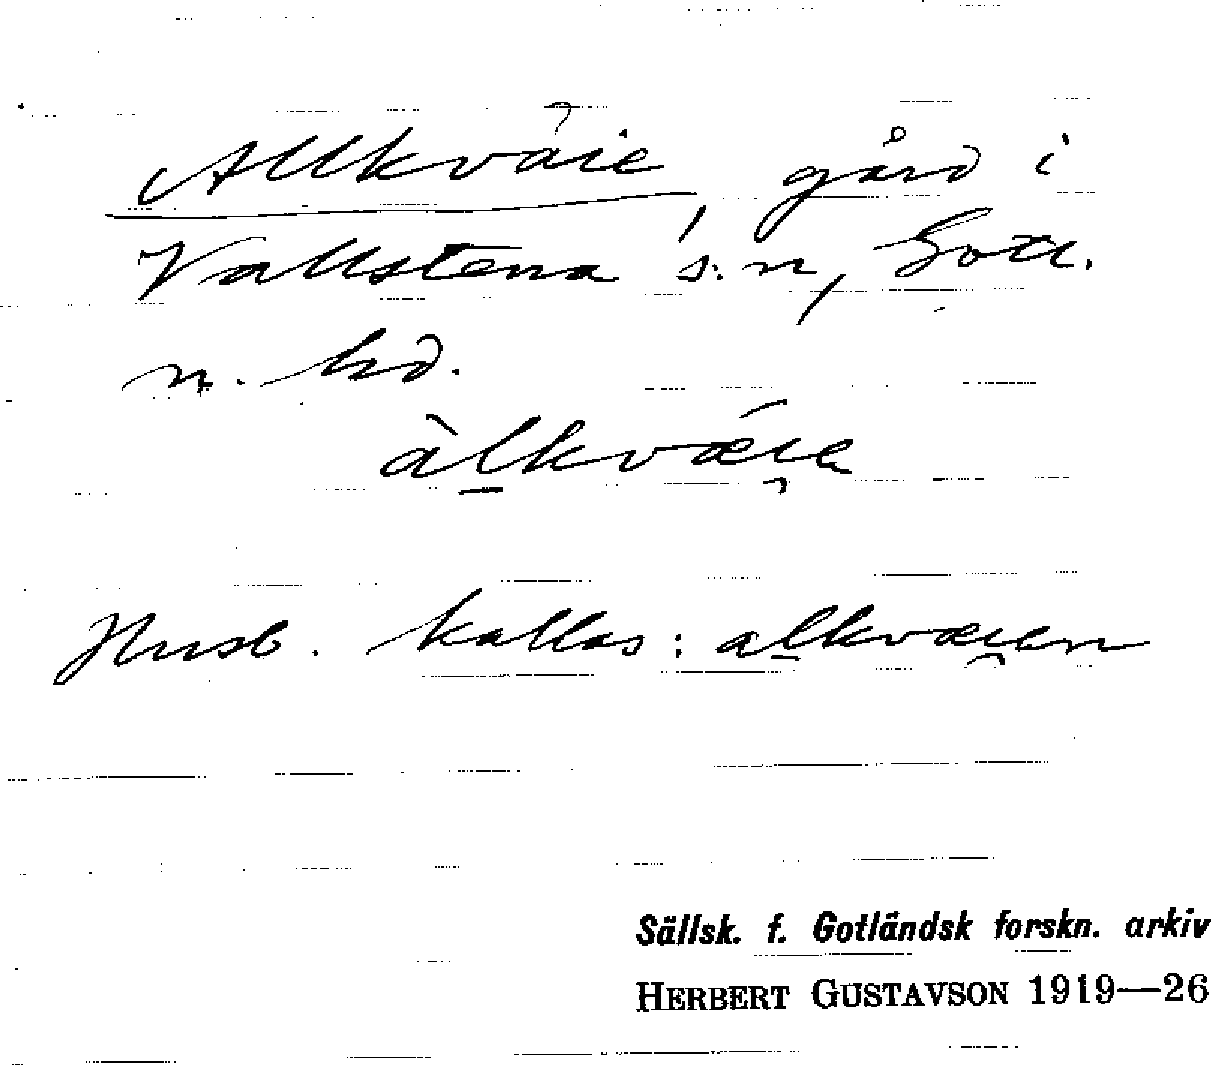 Allkväie, gård i
Vallstena s:n, Gotl.
n. hd.
àlkvǽi̯e
Husb. kallas: alkvæi̯en
Sällsk. f. Gotländsk forskn. arkiv
HERBERT GUSTAVSON 1919—26